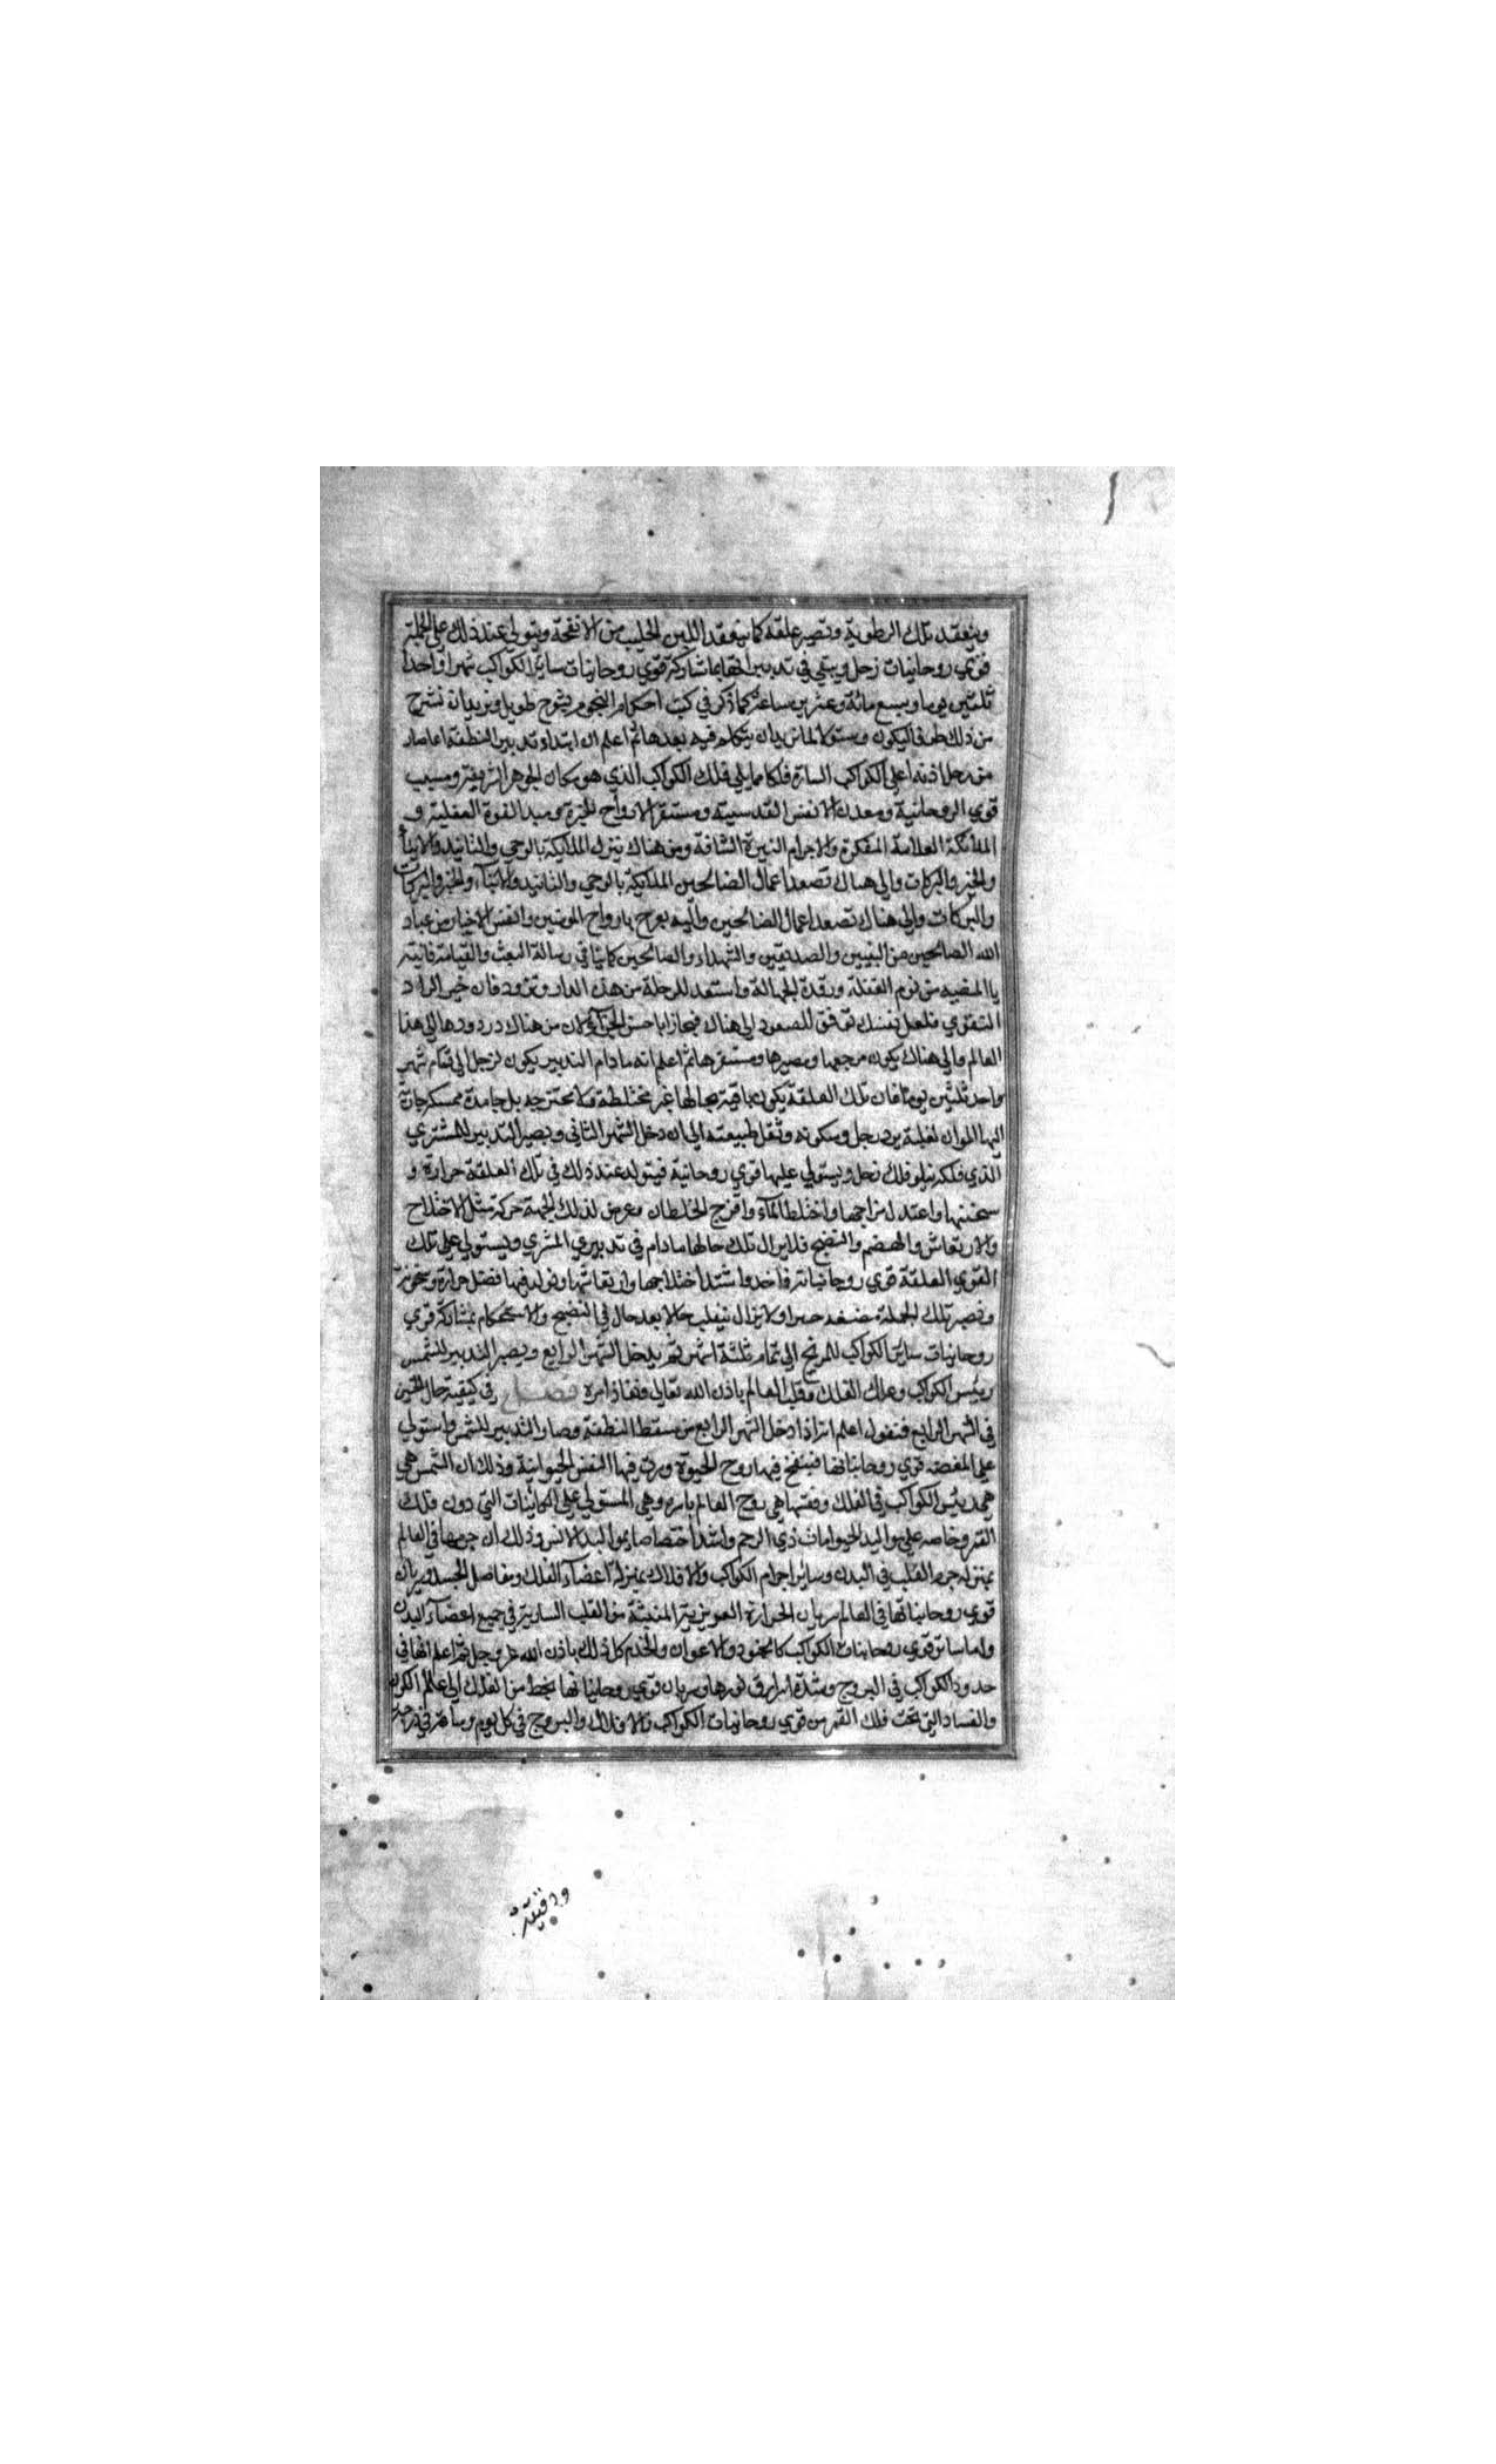 وينعقد تلك الرطوبة وتصير علقة كما ينعقد اللبن الحليب من الانفحة ويتولى عند ذلك على الجملة
قوي روحانيات زحل ويبقي في تدبيرا نهايما شاركة قوي روحانيات ساير الكواكب شهرا واحدا
ثلثين يوما وسبع مائة وعشرين ساعة كما ذكر في كتب احكام النجوم بشرح طويل ونريد ان نشرح
من ذلك طرفا ليكون بعدها ثم اعلم ان ابتداء تدبير النطفة انما صار
من زحل اذ انه اعلى الكواكب السيارة فلكا مما يلي فلك الكواكب الذي هو مكان الجوهر الشريفة ومسبب
قوي الروحانية ومعدن الانفس القدسية ومستقر الارواح الخيرة ومبدا القوة العقلية و
الملائكة العلامة المفكرة والاجرام النيرة الشافة ومن هناك ينزل الملايكة بالوحي والتائيد والانباء
والخير والبركات والي هناك تصعد اعمال الصالحين الملايكة بالوحي والتائيد والانباء والخير والبركات
والبركات والي هناك تصعد اعمال الصالحين واليه يعرج بارواح المومنين وانفس الاخيار من عباد
الله الصالحين من النبيين والصديقين والشهداء والصالحين كما بينا في رسالة البعث والقيامة فانتبه
يا من نوم الغفلة ورقدة الجهالة واستعد للرحلة من هذه الدار وتزود فان خير الزاد
التقوي فلعل نفسك توفق للصعود الي هناك فيجازا باحسن الجزاء لان من هناك درودها الي هذا
العالم والي هناك يكون مرجعها ومصيرها ومستقرها ثم اعلم انه ما دام التدبير يكون لزحل الى تمام شهر
واحد ثلثين يوما فان تلك العلقة يكون باقية بحالها غير مختلطة ولا ممتزجة بل جامدة
اليها المواد لغلبة برد زحل وسكونه وثقل طبيعته الى ان دخل الشهر الثاني ويصير التدبير للمشتري
الذي فلكه يتلو فلك زحل ويستولي عليها قوي روحانية فيتولد عند ذلك في تلك العلقة حرارة و
سخنتها واعتدل مزاجها واختلطا الماء وامتزج الخلطان وعرض لذلك الجملة حركة مثل الاختلاج
والارتعاش والهضم والنضج فلا يزال تلك حالها ما دام في تدبيري المشري ويستولي علي تلك
القوي العلقة قوي روحانياته فاخذ واشتد اختلاجها وارتعاشها وتولد فيها فضل حرارة وسخونة
وتصير تلك الجملة ولا يزال ينقلب حالا بعد حال في النضج والاستحكام بمشاركة قوي
روحانيات ساير الكواكب للمريخ الي تمام ثلثة اشهر ثم يدخل الشهر الرابع ويصير التدبير للشمس
رييس الكواكب وملك الفلك وقلب العالم باذن الله تعالي ونفاذ امره فصل في كيفية حال الجنين
في الشهر الرابع فنقول اعلم انه اذا دخل الشهر الرابع من مسقط النطفة وصار التدبير للشمس واستولي
علي المضغة قوي روحانياتها فينفخ فيها روح الحيوة وسرت فيها النفس الحيوانية وذلك ان الشمس هي
هي رييس الكواكب في الفلك ونفسها هي روح العالم باسره وهي المستولي علي الكائنات التي دون فلك
القمر وخاصه علي مواليد الحيوانات ذي الرحم واشد اختصاصا بمواليد الانس وذلك ان جرمها في العالم
بمنزلة جرم القلب في البدن وساير اجرام الكواكب والافلاك بمنزلة اعضاء الفلك ومفاصل الجسد وسريان
قوي روحانياتها في العالم سريان الحرارة الغريزية المنبثة من القلب السارية في جميع اعضاء البدن
واما ساير قوي روحانيات الكواكب كالجنود والاعوان والخدم كل ذلك باذن الله عز وجل ثم اعلم انها في
حدود الكواكب في البروج وشدة اشراق نورها وسريان قوي روحانياتها ينحط من الفلك الى عالم الكون
والفساد التي تحت فلك القمر من قوي روحانيات الكواكب والافلاك والبروج في كل يوم وساعة في درجة
ودقيقة